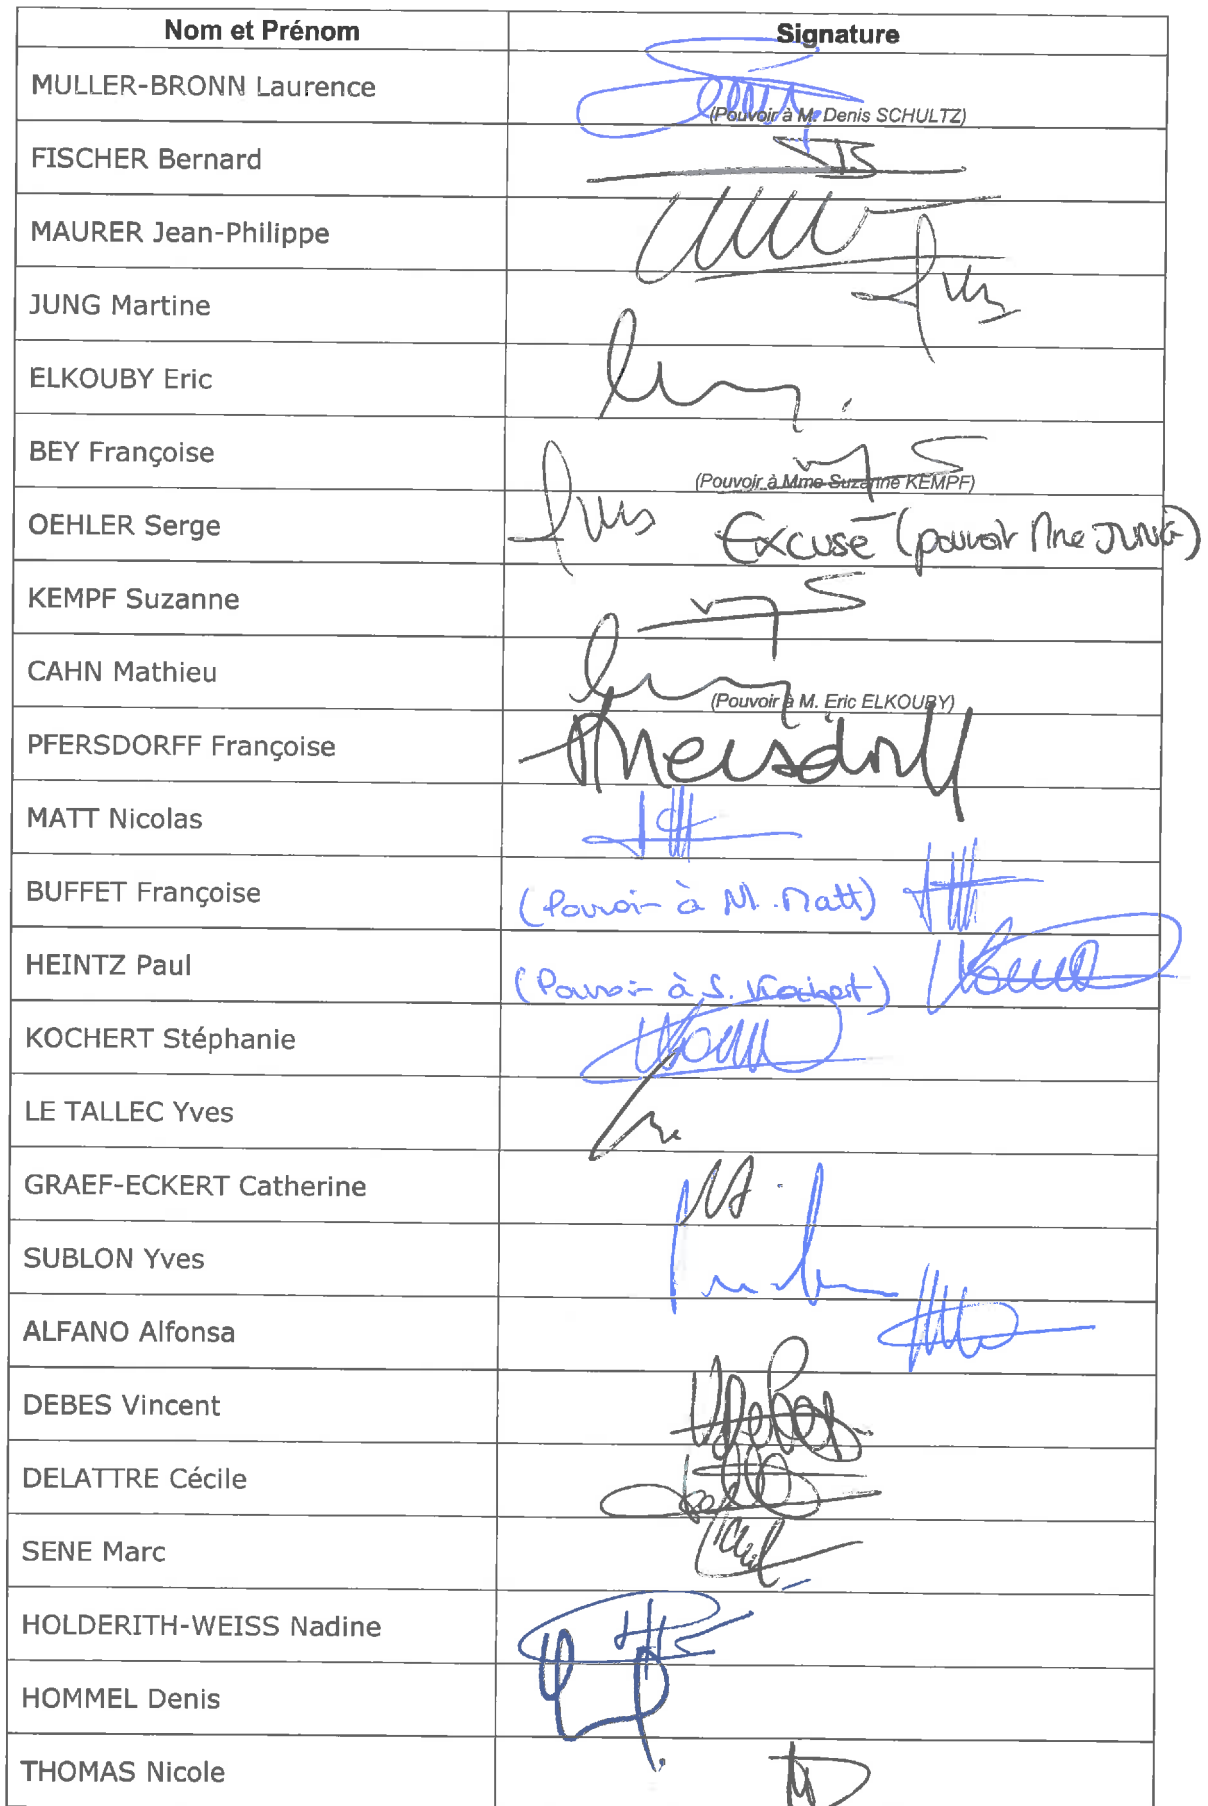 Nom et Prénom Signature
MULLER-BRONN Laurence (Pouvoir à M. Denis SCHULTZ)
FISCHER Bernard
MAURER Jean-Philippe
JUNG Martine
ELKOUBY Eric
BEY Françoise (Pouvoir à Mme Suzanne KEMPF)
OEHLER Serge Excusé (pouvoir Mme JUNG)
KEMPF Suzanne
CAHN Mathieu (Pouvoir à M. Eric ELKOUBY)
PFERSDORFF Françoise
MATT Nicolas
BUFFET Françoise (Pouvoir à M. Matt)
HEINTZ Paul (Pouvoir à S. Kochert)
KOCHERT Stéphanie
LE TALLEC Yves
GRAEF-ECKERT Catherine
SUBLON Yves
ALFANO Alfonsa
DEBES Vincent
DELATTRE Cécile
SENE Marc
HOLDERITH-WEISS Nadine
HOMMEL Denis
THOMAS Nicole